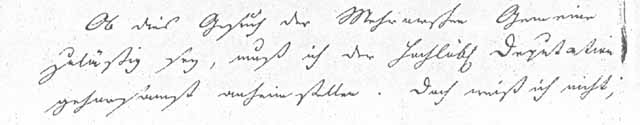 Ob dies Gesuch der Mehrerwehnten Gemeine
zuläßig sey, muß ich der Hochlöbl Deputation
gehorsamst anheimstellen. Doch weiß ich nicht,